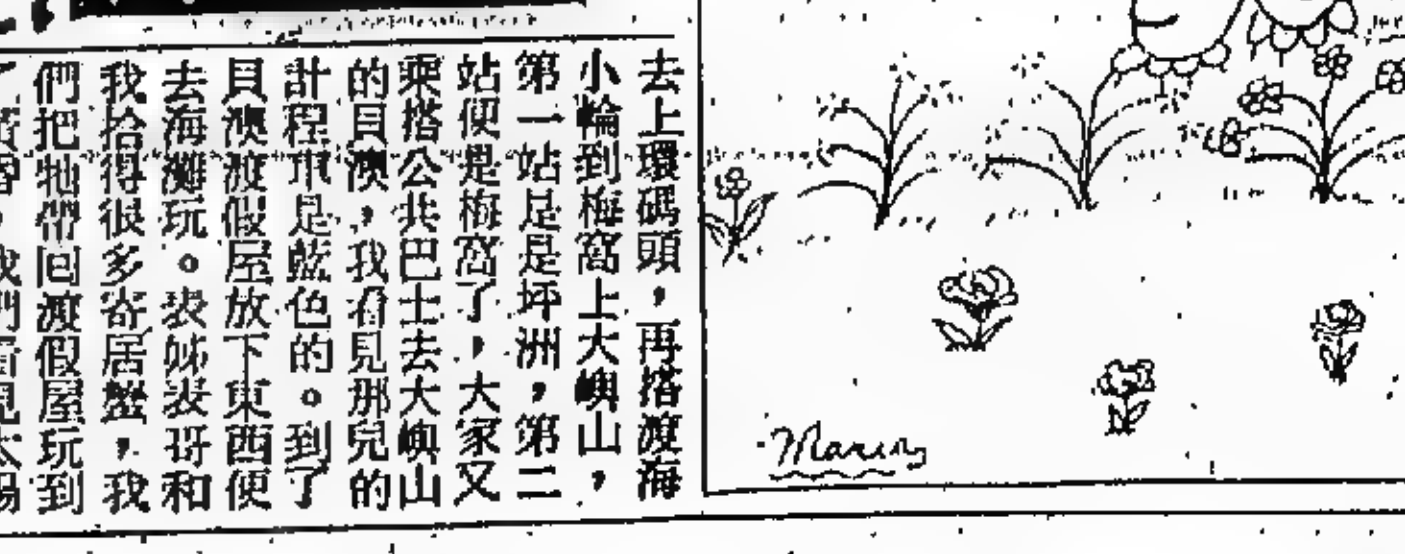 去上環碼頭，再搭渡海
小輪到梅窩上大嶼山，
第一站足是坪洲，第二
站便是梅窩了，大家又
乘搭公共巴士去大嶼山
的貝澳，我看見那兒的
計程車是藍色的。到了
貝澳渡假屋放下東西便
去海灘玩。表姊表哥和
我拾得很多寄居蟹，我
們把牠帶回渡假屋玩到
我們看見太陽